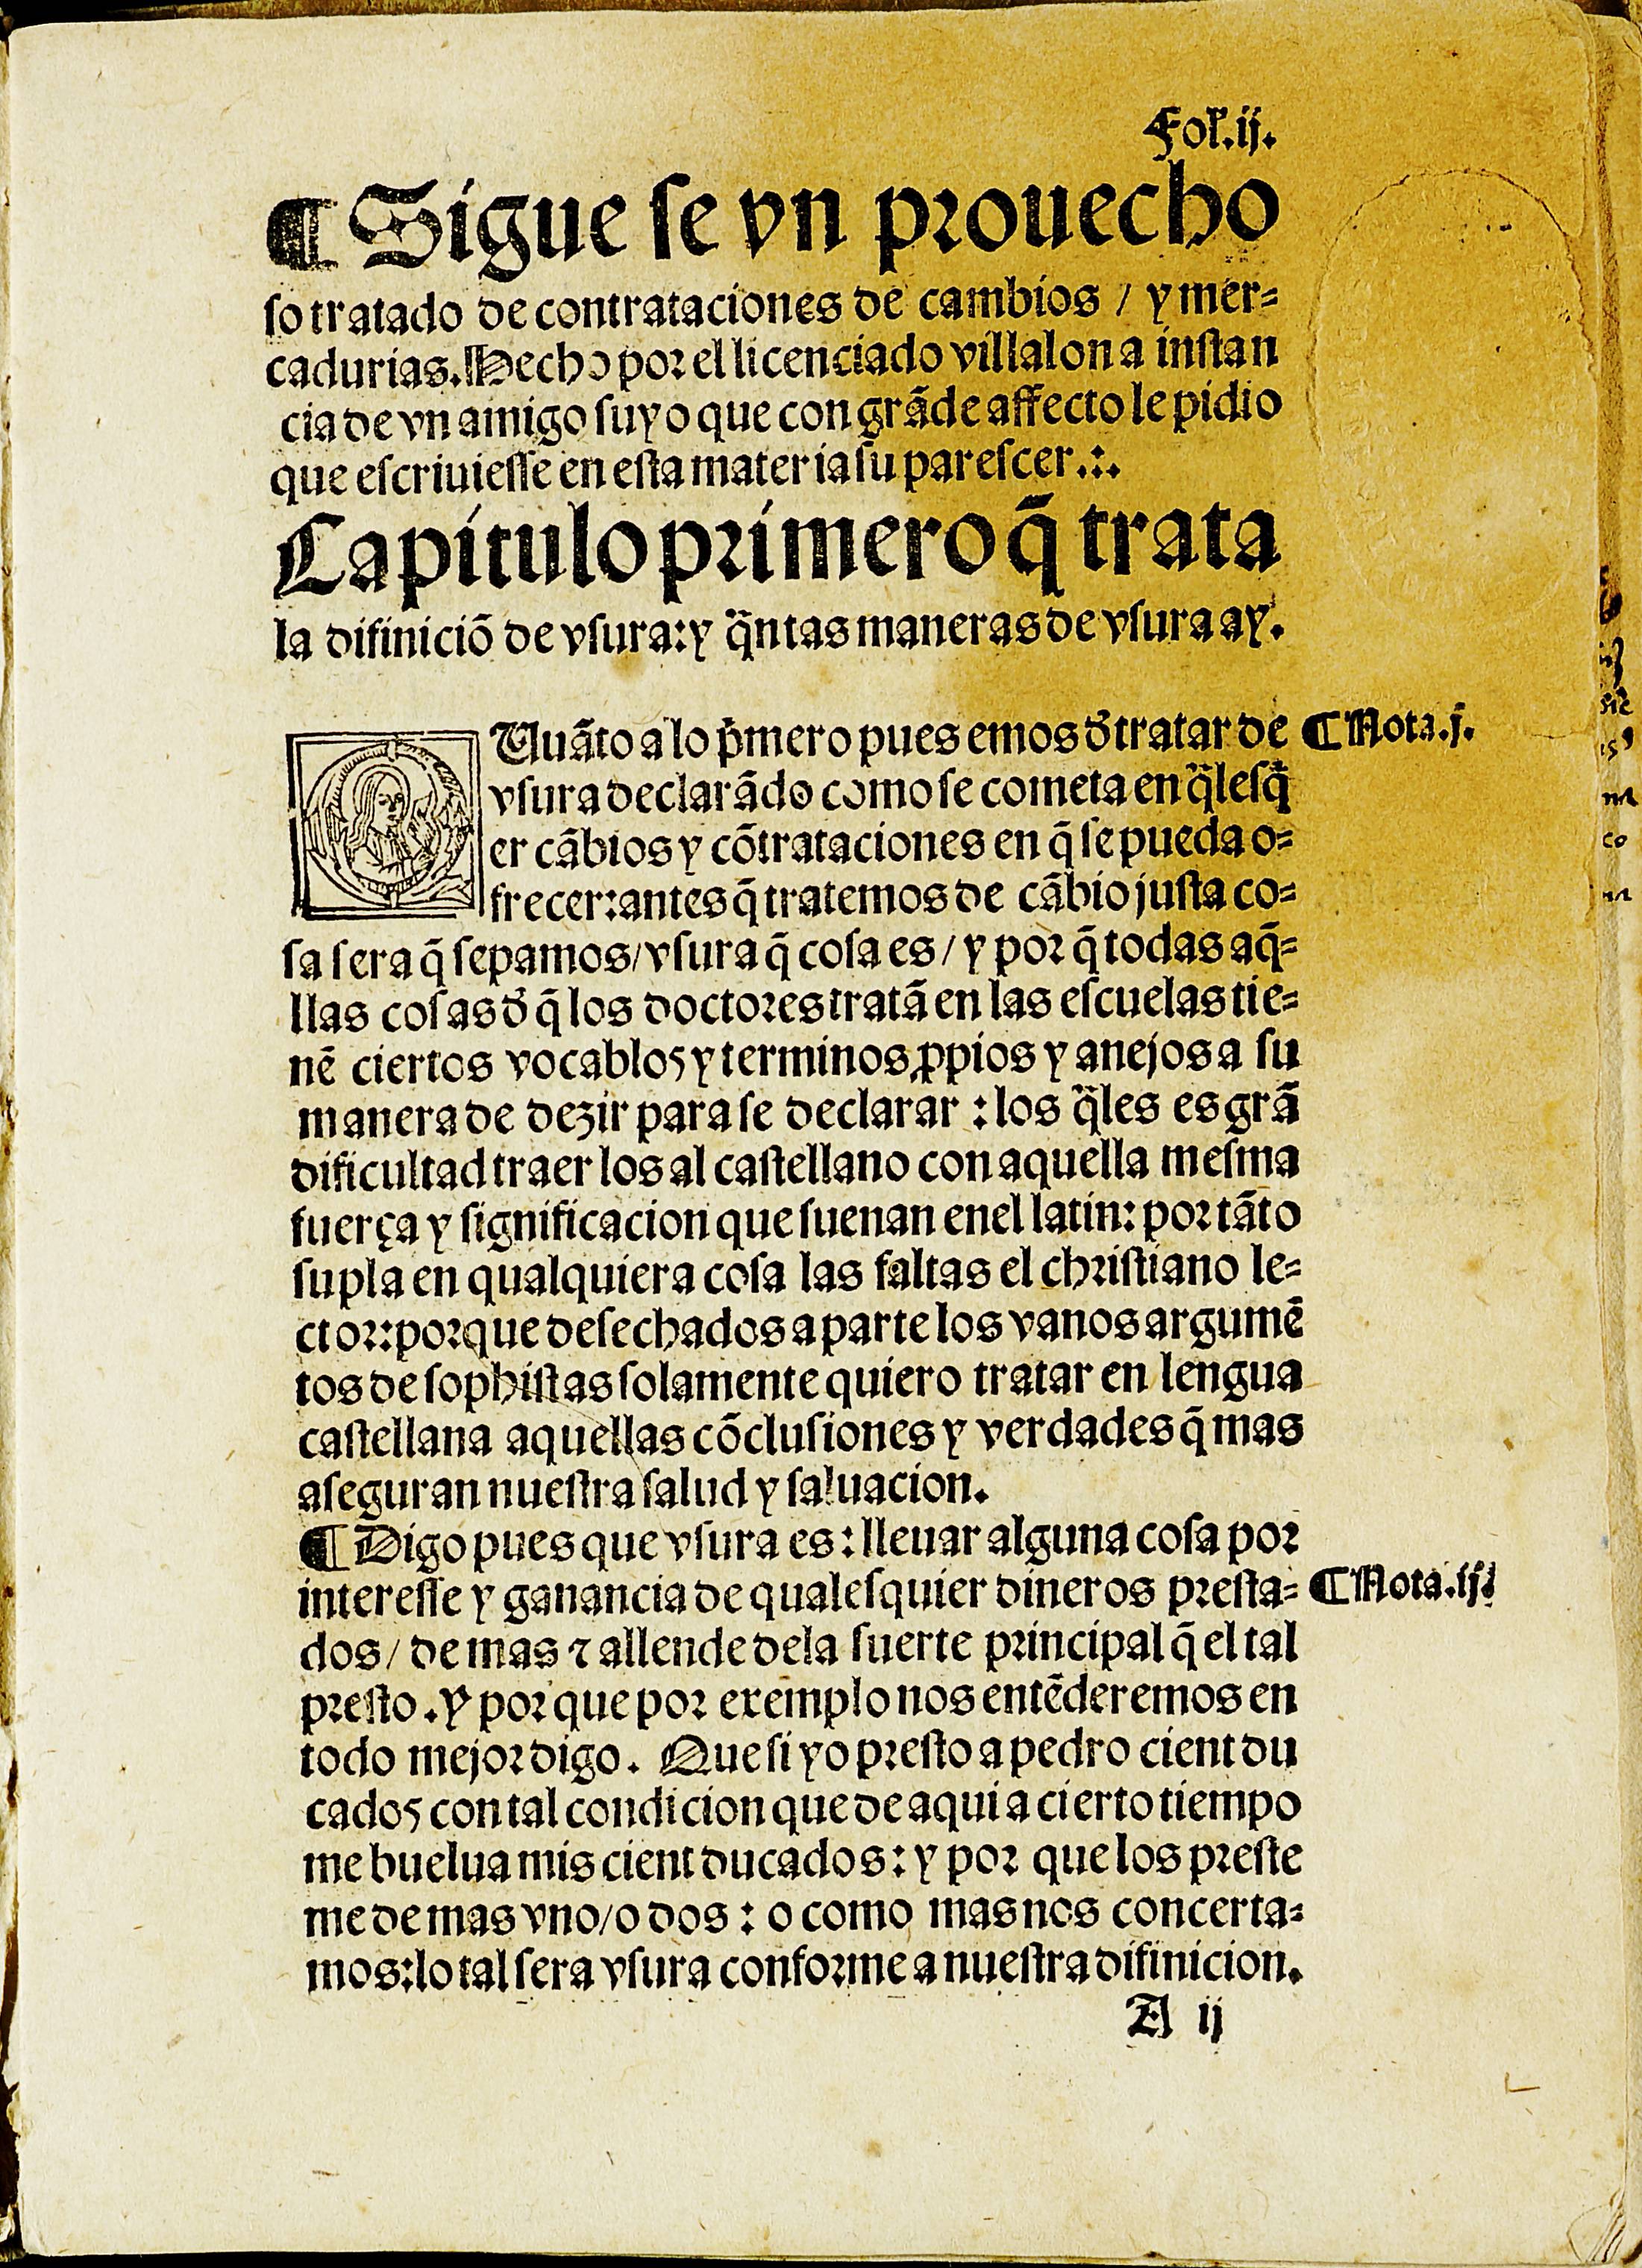 Fol.ij.
¶ Sigue se vn prouecho
so tratado de contrataciones de cambios / y mer-
cadurias. Hecho por el licenciado villalon a instan
cia de vn amigo suyo que con grãde affecto le pidio
que escriuiesse en esta materia su parescer.:.
Capitulo primero q̃ trata
la difiniciõ de vsura: y q̃ntas maneras de vsura ay.
QUuãto a lo p̃mero pues emos d̃ tratar de ¶ Nota.j.
vsura declarãdo como se cometa en q̃lesq̃
er cãbios y cõtrataciones en q̃ se pueda o-
frecer: antes q̃ tratemos de cãbio justa co-
sa sera q̃ sepamos / vsura q̃ cosa es / y por q̃ todas aq̃-
llas cosas d̃ q̃ los doctores tratã en las escuelas tie-
nẽ ciertos vocablos y terminos ꝓpios y anejos a su
manera de dezir para se declarar : los q̃les es grã
dificultad traer los al castellano con aquella mesma
fuerça y significacion que suenan enel latin: por tãto
supla en qualquiera cosa las faltas el christiano le-
ctor: porque desechados a parte los vanos argumẽ
tos de sophistas solamente quiero tratar en lengua
castellana aquellas cõclusiones y verdades q̃ mas
aseguran nuestra salud y saluacion.
¶ Digo pues que vsura es: lleuar alguna cosa por
interesse y ganancia de qualesquier dineros presta- ¶ Nota.ij.
dos / de mas ⁊ allende dela suerte principal q̃ el tal
presto. Y por que por exemplo nos entẽderemos en
todo mejor digo. Que si yo presto a pedro cient du
cados con tal condicion que de aqui a cierto tiempo
me buelua mis cient ducados: y por que los preste
me de mas vno / o dos : o como mas nos concerta-
mos: lo tal sera vsura conforme a nuestra difinicion.
A ij